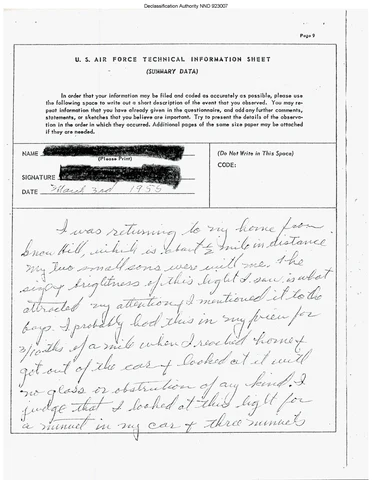 Declassification Authority NND 923007
Page 9
U. S. AIR FORCE TECHNICAL INFORMATION SHEET
(SUMMARY DATA)
In order that your information may be filed and coded as accurately as possible, please use
the following space to write out a short description of the event that you observed. You may re-
peat information that you have already given in the questionnaire, and add any further comments,
statements, or sketches that you believe are important. Try to present the details of the observa-
tion in the order in which they occurred. Additional pages of the same size paper may be attached
if they are needed.
NAME
(Please Print)
SIGNATURE
DATE March 3rd 1955
(Do Not Write in This Space)
CODE:
I was returning to my home from
Snow Hill, which is about ½ mile in distance.
My two small sons were with me. The
brightness of this light I saw is what
attracted my attention & I mentioned it to the
boys. I probably had this in my view for
3/10ths of a mile when I reached home &
got out of the car & looked at it with
no glass or obstruction of any kind. I
judge that I looked at this light for
a minuet in my car & three minuets